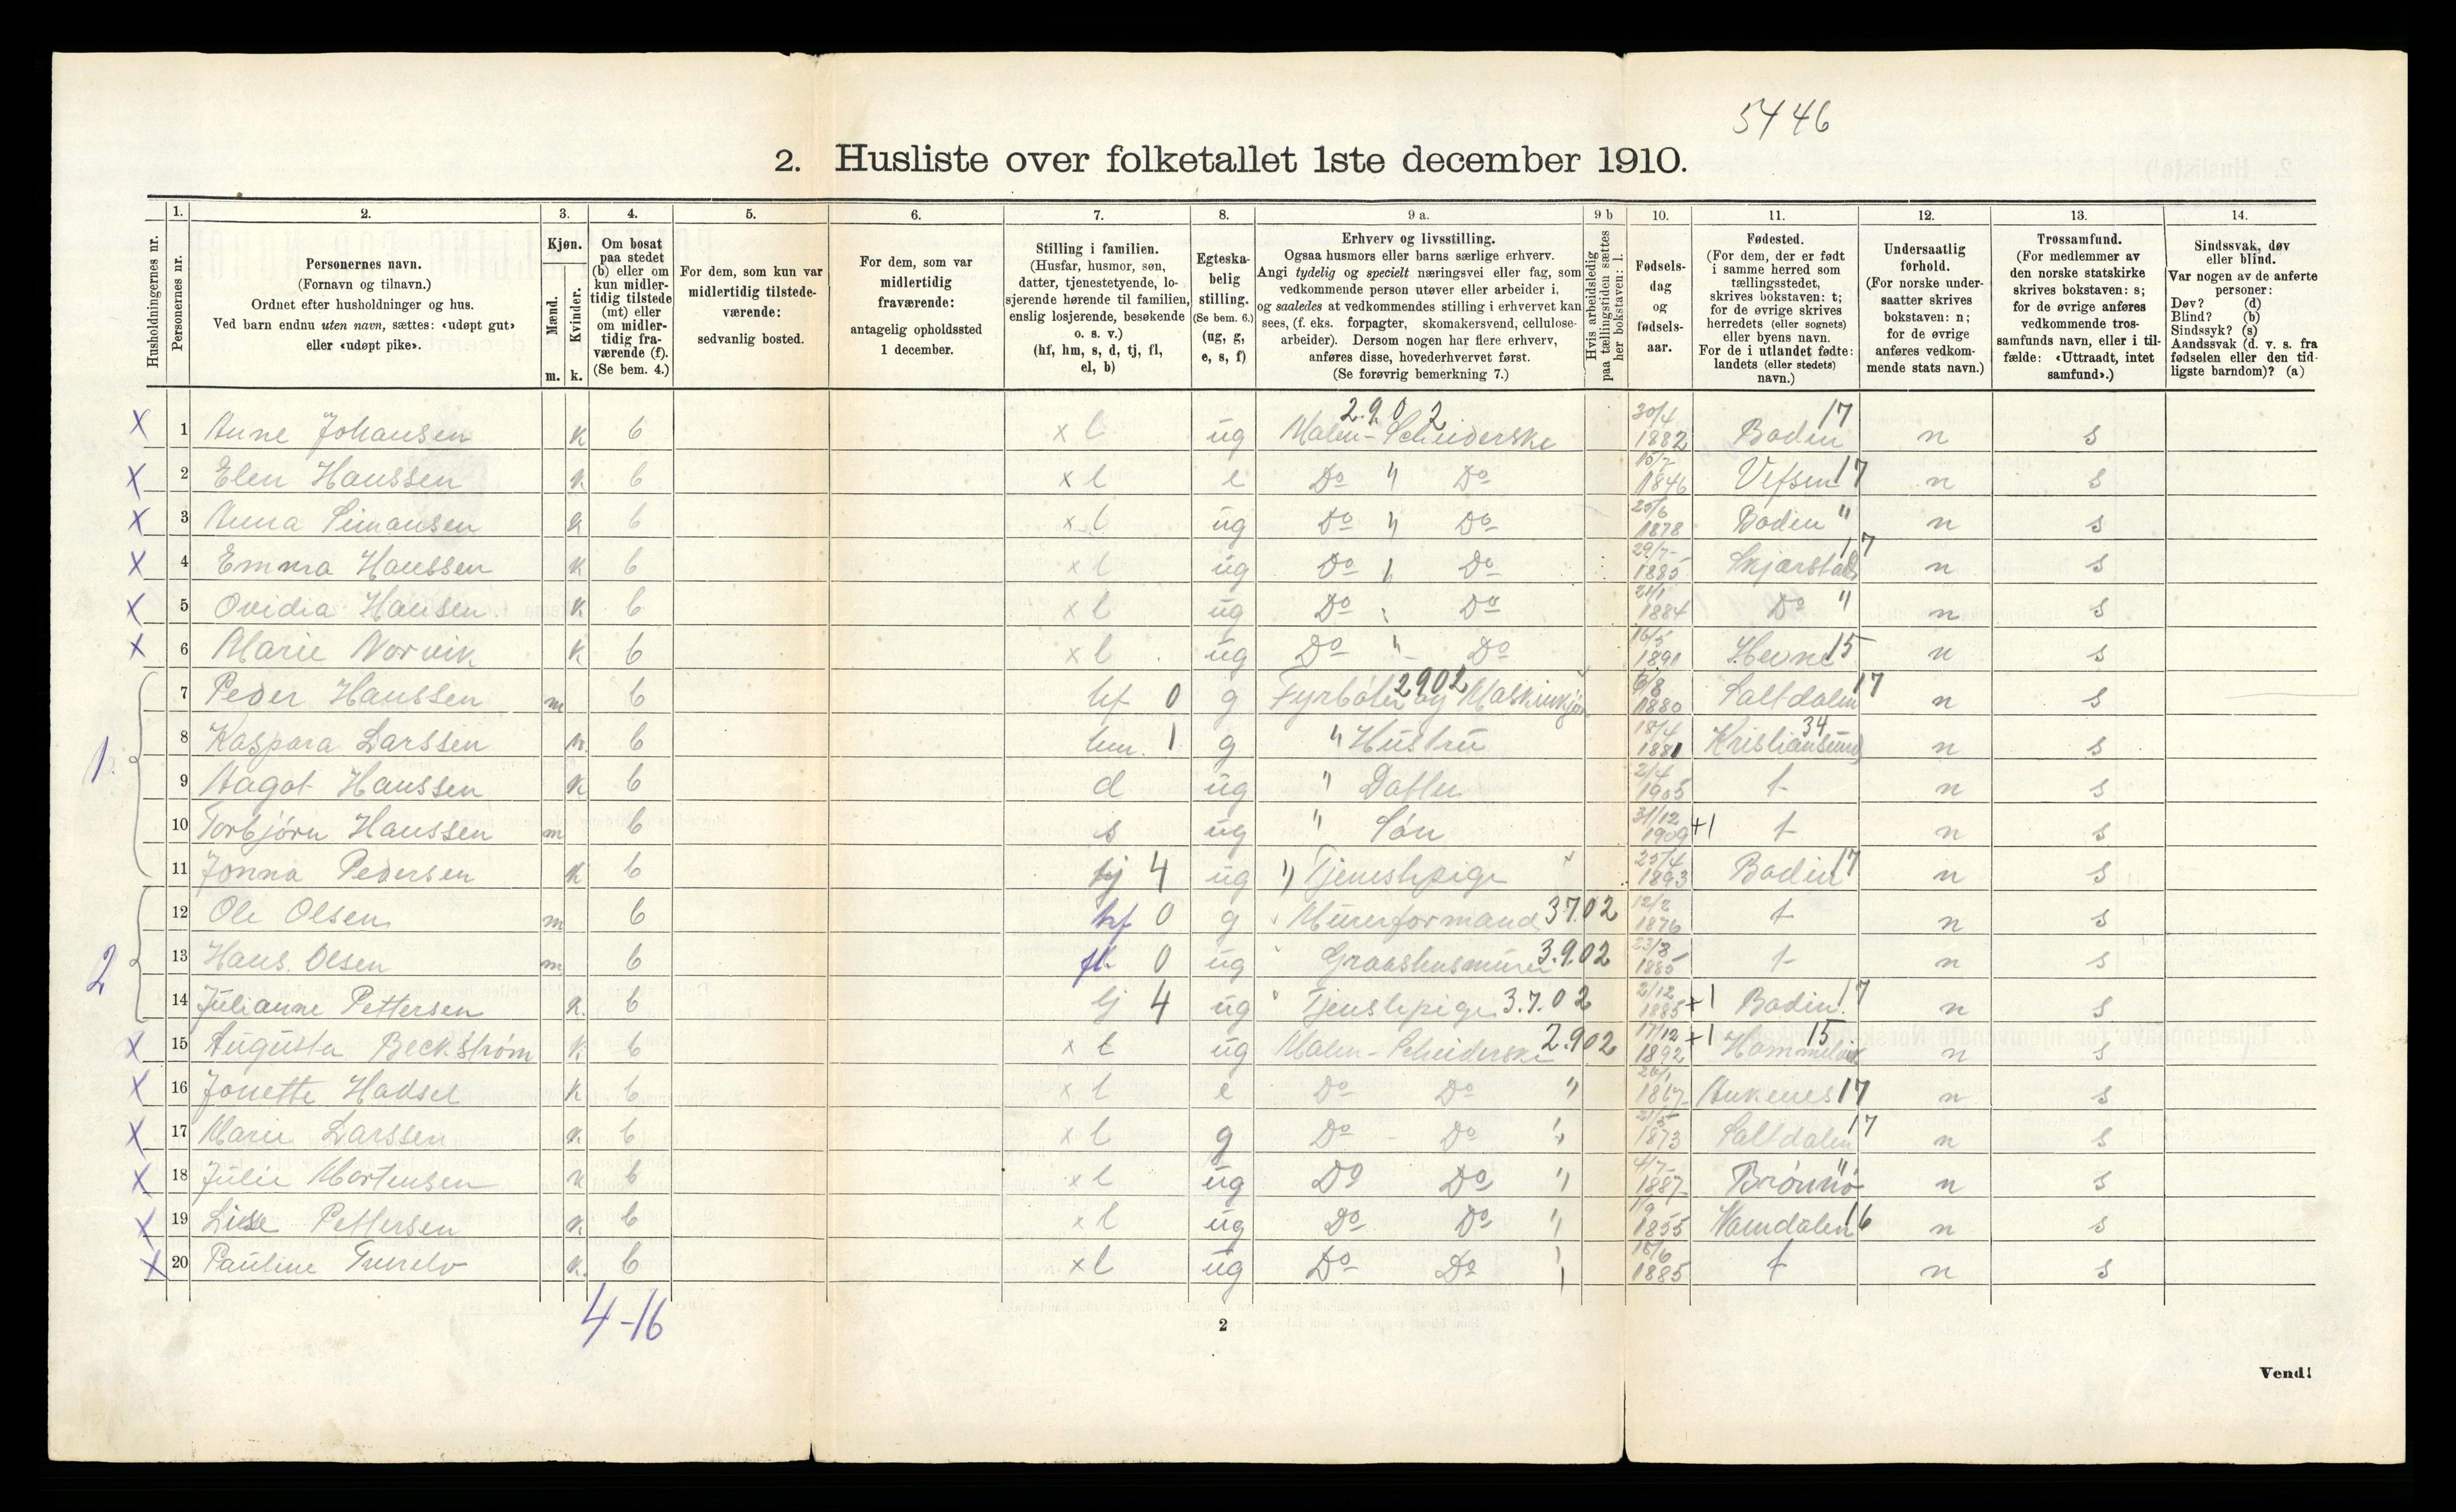 5446
2. Husliste over folketallet 1ste december 1910.
Husholdningernes nr.
1. Personernes nr.
2. Personernes navn.
(Fornavn og tilnavn.)
Ordnet efter husholdninger og hus.
Ved barn endnu uten navn, sættes: «udøpt gut»
eller «udøpt pike».
3. Kjøn.
Mænd. m.
Kvinder. k.
4. Om bosat
paa stedet
(b) eller om
kun midler-
tidig tilstede
(mt) eller
om midler-
tidig fra-
værende (f).
(Se bem. 4.)
5. For dem, som kun var
midlertidig tilstede-
værende:
sedvanlig bosted.
6. For dem, som var
midlertidig
fraværende:
antagelig opholdssted
1 december.
7. Stilling i familien.
(Husfar, husmor, søn,
datter, tjenestetyende, lo-
sjerende hørende til familien,
enslig losjerende, besøkende
o. s. v.)
(hf, hm, s, d, tj, fl,
el, b)
8. Egteska-
belig
stilling.
(Se bem. 6.)
(ug, g,
e, s, f)
9 a. Erhverv og livsstilling.
Ogsaa husmors eller barns særlige erhverv.
Angi tydelig og specielt næringsvei eller fag, som
vedkommende person utøver eller arbeider i,
og saaledes at vedkommendes stilling i erhvervet kan
sees, (f. eks. forpagter, skomakersvend, cellulose-
arbeider). Dersom nogen har flere erhverv,
anføres disse, hovederhvervet først.
(Se forøvrig bemerkning 7.)
9 b Hvis arbeidsledig
paa tællingstiden sættes
her bokstaven: l.
10. Fødsels-
dag
og
fødsels-
aar.
11. Fødested.
(For dem, der er født
i samme herred som
tællingsstedet,
skrives bokstaven: t;
for de øvrige skrives
herredets (eller sognets)
eller byens navn.
For de i utlandet fødte:
landets (eller stedets)
navn.)
12. Undersaatlig
forhold.
(For norske under-
saatter skrives
bokstaven: n;
for de øvrige
anføres vedkom-
mende stats navn.)
13. Trossamfund.
(For medlemmer av
den norske statskirke
skrives bokstaven: s;
for de øvrige anføres
vedkommende tros-
samfunds navn, eller i til-
fælde: «Uttraadt, intet
samfund».)
14. Sindssvak, døv
eller blind.
Var nogen av de anførte
personer:
Døv? (d)
Blind? (b)
Sindssyk? (s)
Aandssvak (d. v. s. fra
fødselen eller den tid-
ligste barndom)? (a)
X 1 Anne Johansen k b x l ug 2.902 Malm-Scheiderske 30/4 1882 Bodin 17 n s
X 2 Elen Hanssen k b x l e Do " Do 15/7 1846 Vefsen 17 n s
X 3 Anna Simonsen k b x l ug Do " Do 20/6 1878 Bodin " n s
X 4 Emma Hanssen k b x l ug Do " Do 29/7 1885 Skjærstad 17 n s
X 5 Ovidia Hansen k b x l ug Do " Do 21/1 1884 Do " n s
X 6 Marie Norvik k b x l ug Do " Do 16/5 1891 Hevne 15 n s
1. 7 Peder Hanssen m b hf 0 g Fyrbøter og Maskinkjør 2902 6/8 1880 Saltdalen 17 n s
8 Kaspara Larssen k b hm. 1 g " Hustru 18/4 1881 Kristiansund 34 n s
9 Aagot Hanssen k b d ug " Datter 2/4 1905 t n s
10 Torbjørn Hanssen m b s ug " Søn 31/12 1909 +1 t n s
11 Jonna Pedersen k b tj 4 ug " Tjenestpige 25/4 1893 Bodin 17 n s
2 12 Ole Olsen m b hf 0 g Murerformand 37.02 12/2 1876 t n s
13 Hans Olsen m b fl 0 ug Graastensmurer 3.9.02 23/8 1885 t n s
14 Julianne Pettersen k. b tj 4 ug Tjenstepige 3.7.02 2/12 1885 +1 Bodin 17 n s
X 15 Augusta Beckstrøm k b x l ug Malm-Scheiderske 2.902 17/12 1892 +1 Hommelvik 15 n s
X 16 Jonette Hadsel k b x l e Do Do " 26/1 1867 Ankenes 17 n s
X 17 Marie Larssen k b x l g Do - Do " 21/5 1873 Saltdalen 17 n s
X 18 Julie Mortensen k b x l ug Do Do " 4/7 1887 Brønnø " n s
X 19 Liese Pettersen k b x l ug Do Do " 1/9 1855 Namdalen 16 n s
X 20 Pauline k. b x l ug Do Do " 15/6 1885 t n s
4-16
2
Vend!